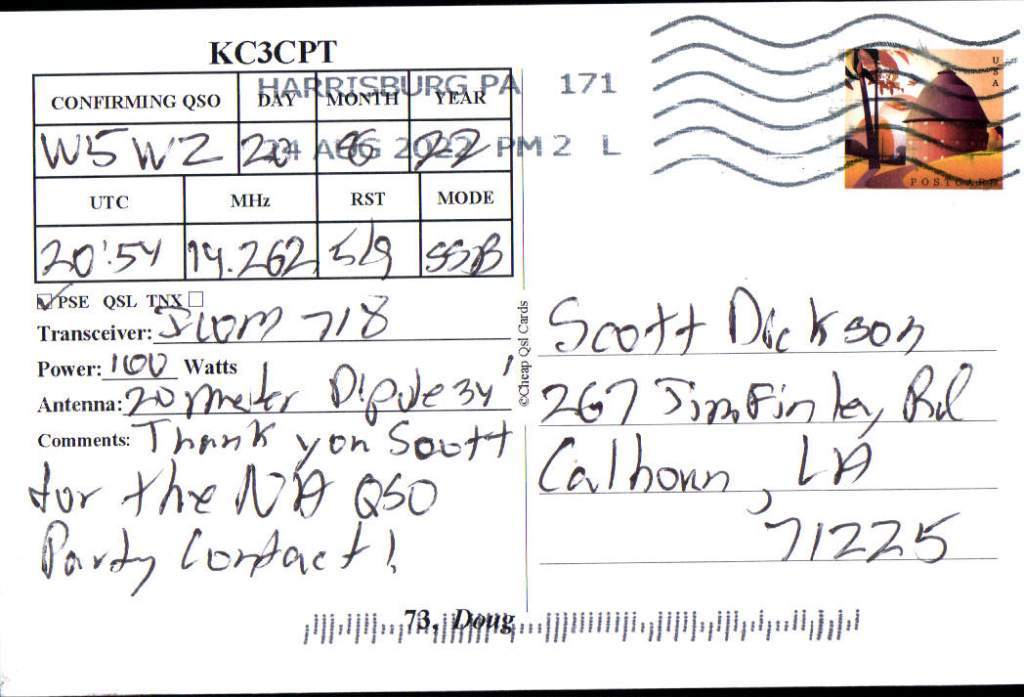 KC3CPT
HARRISBURG PA 171
24 AUG 2022 PM 2 L
USA
POSTCARD
CONFIRMING QSO DAY MONTH YEAR
W5WZ 20 8 22
UTC MHz RST MODE
20:54 14.262 59 SSB
PSE QSL TNX
Transceiver: Icom 718
Power: 100 Watts
Antenna: 20 meter Dipole 34'
Comments: Thank you Scott
for the NA QSO
Party Contact!
73, Doug
©Cheap Qsl Cards
Scott Dickson
267 Jim Finley Rd
Calhoun, LA
71225